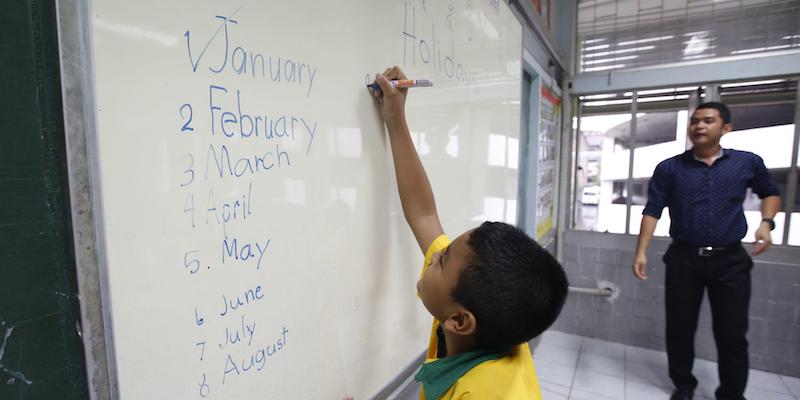 1 January
2 February
3 March
4 April
5. May
6 June
7 July
8 August
Holidays